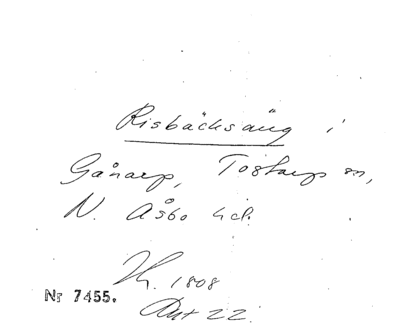 Risbäcksäng i
Gånarp, Tostarps sn,
N. Åsbo hd.
Nr 7455.
1808
Akt 22.